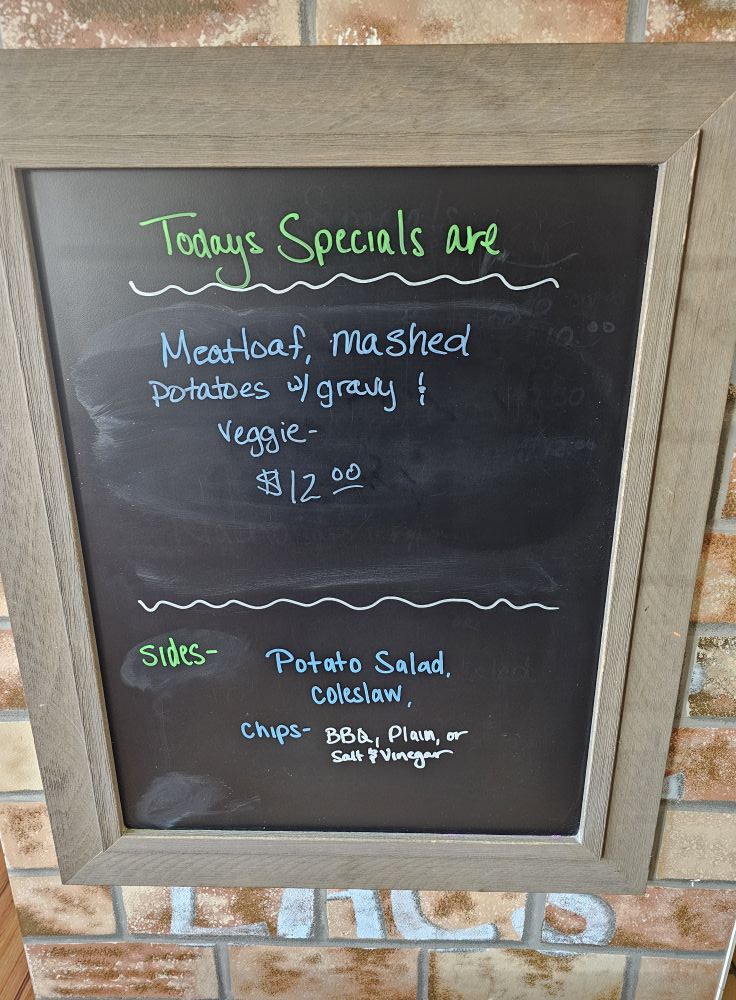 Todays Specials are
Meatloaf, mashed
potatoes w/ gravy &
veggie-
$12 00
Sides- Potato Salad,
coleslaw,
Chips- BBQ, Plain, or
Salt & Vinegar